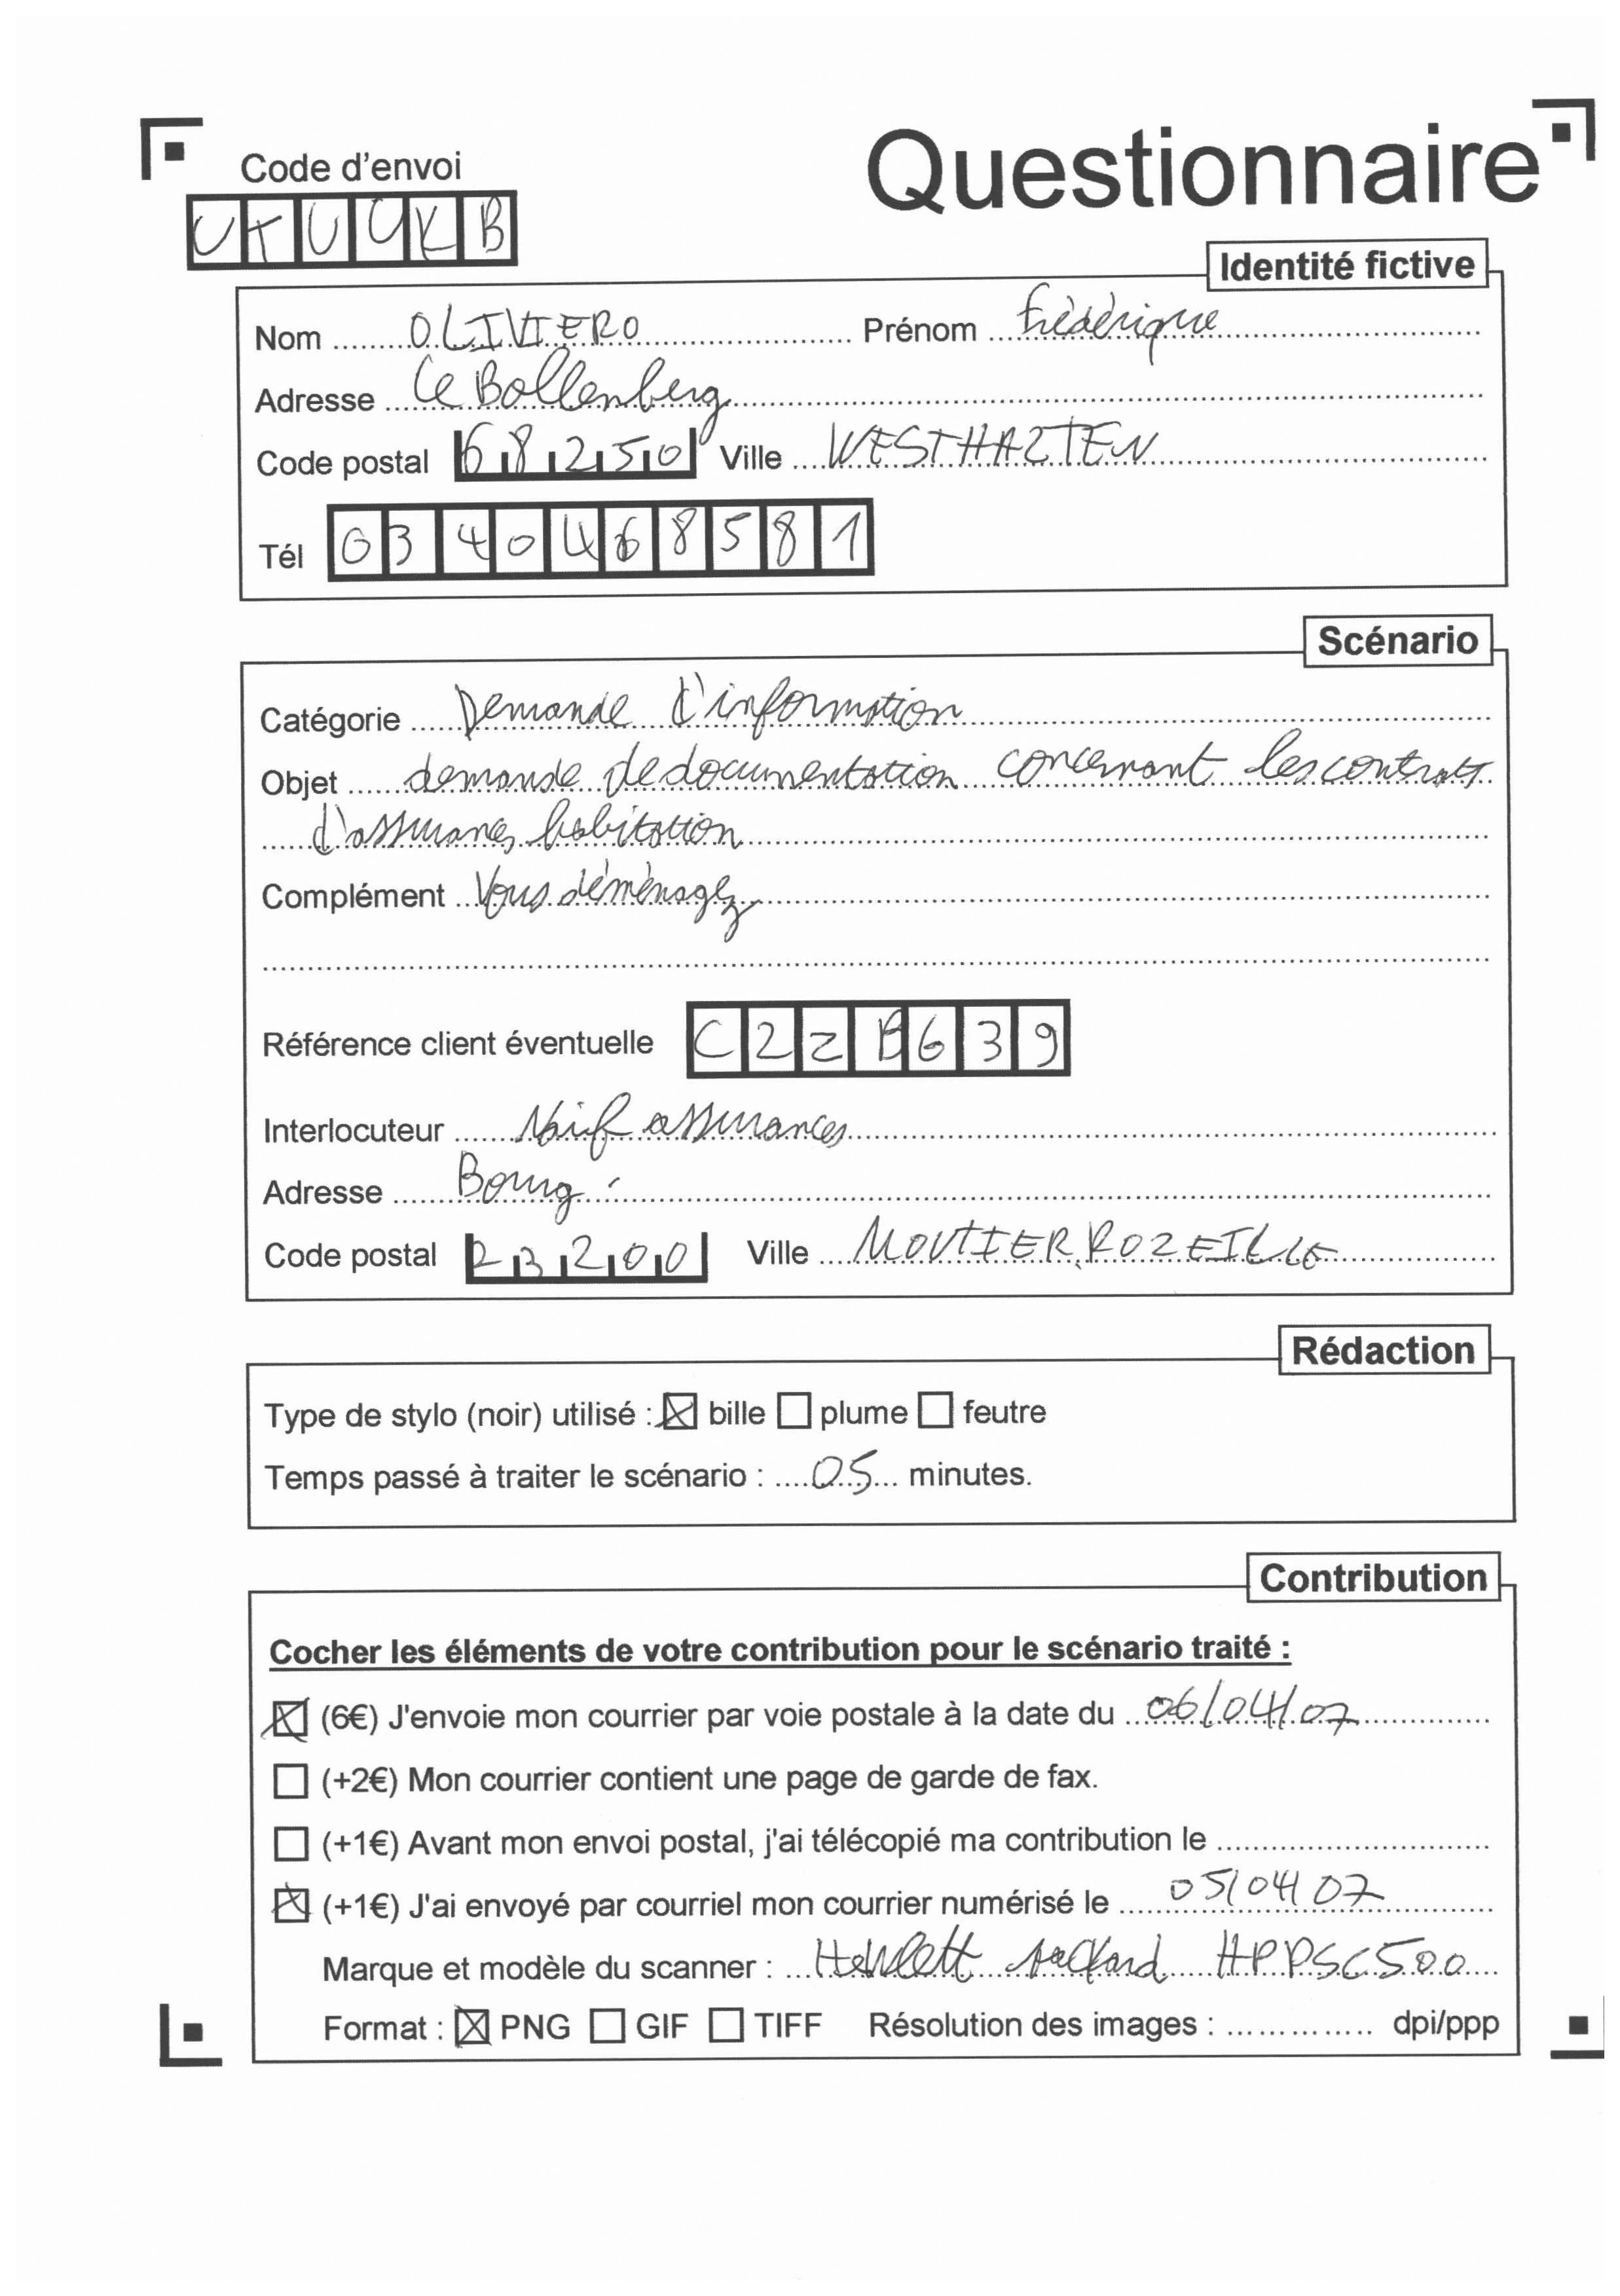 Questionnaire
Code d'envoi
Identité fictive
Nom OLIVIERO Prénom frédérique
Adresse Le Bollenberg
Code postal 68250 Ville WESTHALTEN
Tél 0340468581
Scénario
Catégorie Demande d'information
Objet demande de documentation concernant les contrats
d'assurances habitation
Complément Vous déménagez
Référence client éventuelle C22B639
Interlocuteur assurances
Adresse Bourg
Code postal 23200 Ville MOUTIER ROZEILLE
Rédaction
Type de stylo (noir) utilisé : bille plume feutre
Temps passé à traiter le scénario : 05 minutes.
Contribution
Cocher les éléments de votre contribution pour le scénario traité :
(6€) J'envoie mon courrier par voie postale à la date du 06/04/07
(+2€) Mon courrier contient une page de garde de fax.
(+1€) Avant mon envoi postal, j'ai télécopié ma contribution le
(+1€) J'ai envoyé par courriel mon courrier numérisé le 05/04/07
Marque et modèle du scanner : Hewlett packard HPPSC500
Format : PNG GIF TIFF Résolution des images : dpi/ppp